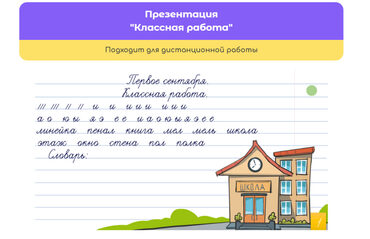 Презентация
"Классная работа"
Подходит для дистанционной работы
Первое сентября.
Классная работа.
а о ю ы я э е ё и а о ю ы я э е ё
линейка пенал книга мел мель школа
этаж окно стена пол полка
Словарь:
ШКОЛА